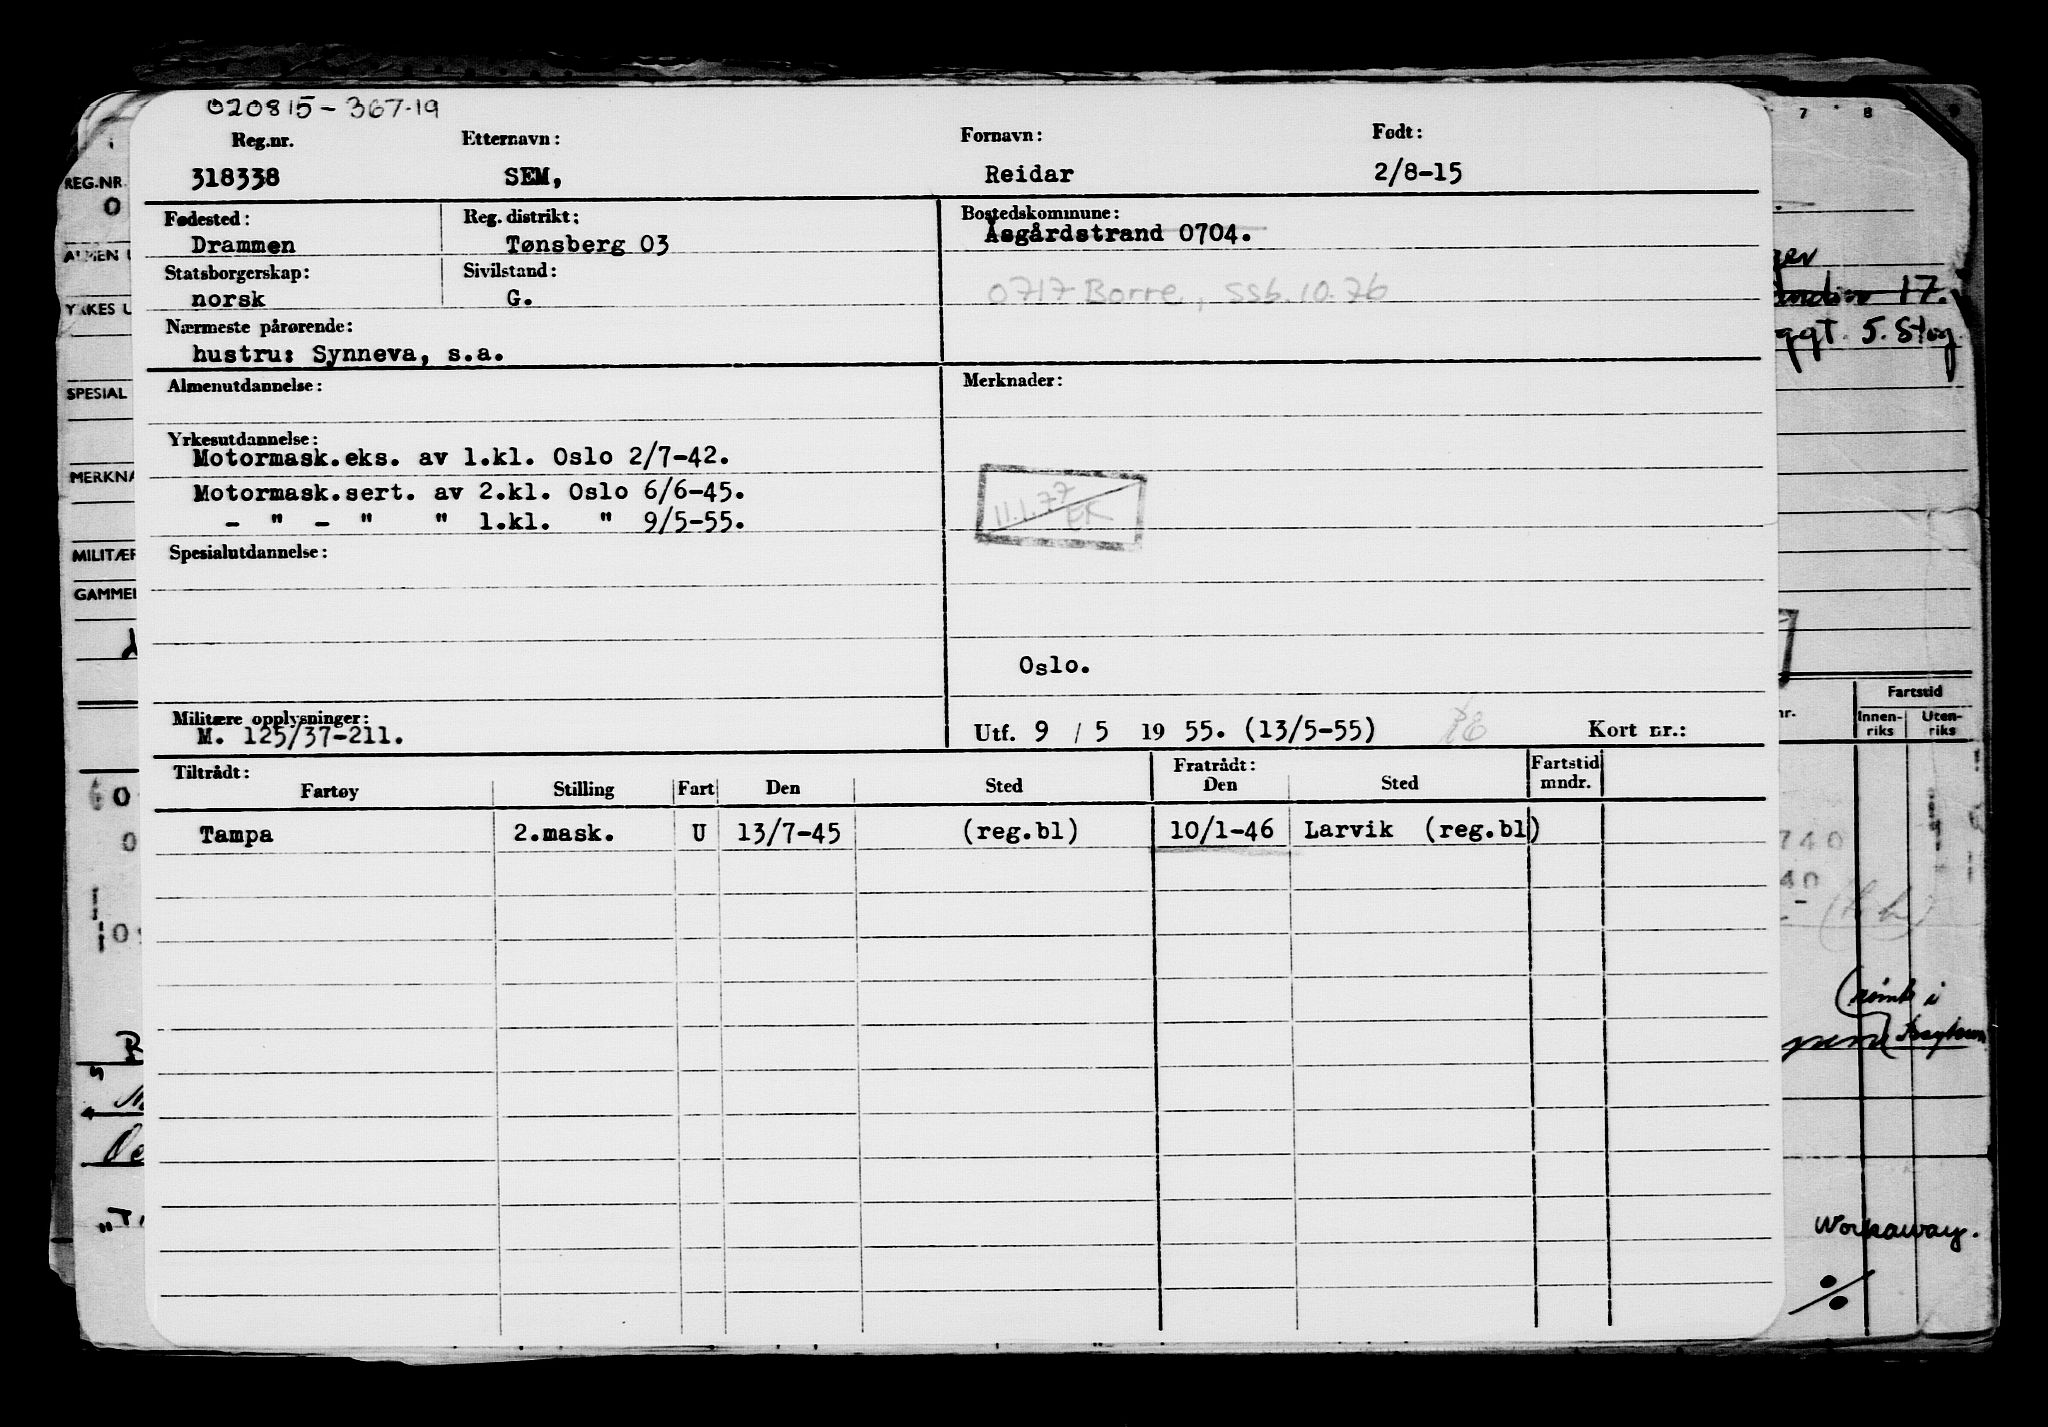 020815-367.19
Reg.nr. Etternavn: Fornavn: Født:
318338 SEM, Reidar 2/8-15
Fødested: Reg. distrikt: Bostedskommune:
Drammen Tønsberg 03 Åsgårdstrand 0704.
Statsborgerskap: Sivilstand:
norsk G. 0717 Borre, ssb. 10.76
Nærmeste pårørende:
hustru: Synneva, s.a.
Almenutdannelse: Merknader:
Yrkesutdannelse:
Motormask.eks. av 1.kl. Oslo 2/7-42.
Motormask.sert. av 2.kl. Oslo 6/6-45.
- " - " " 1.kl. " 9/5-55.
11.1.77
EK
Spesialutdannelse:
Oslo.
Militære opplysninger:
M. 125/37-211.
Utf. 9 / 5 19 55. (13/5-55) Kort nr.:
Tiltrådt: Fratrådt: Fartstid
Fartøy Stilling Fart Den Sted Den Sted mndr.
Tampa 2.mask. U 13/7-45 (reg.bl) 10/1-46 Larvik (reg.bl)
REG.NR.
0
ALMEN U
YRKES U
SPESIAL
MERKNA
MILITÆR
GAMMEL
7 8
17.
5. Stog
Fartstid
nr. Innen- Uten-
riks riks
740
40
Workaway.